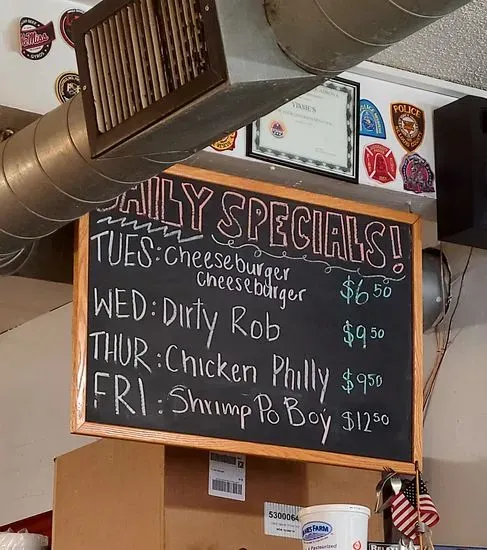 Ole Miss
VINNIE'S
POLICE
DAILY SPECIALS!
TUES: Cheeseburger
Cheeseburger $6.50
WED: Dirty Rob $9.50
THUR: Chicken Philly $9.50
FRI: Shrimp Po Boy $12.50
5300064
FARM